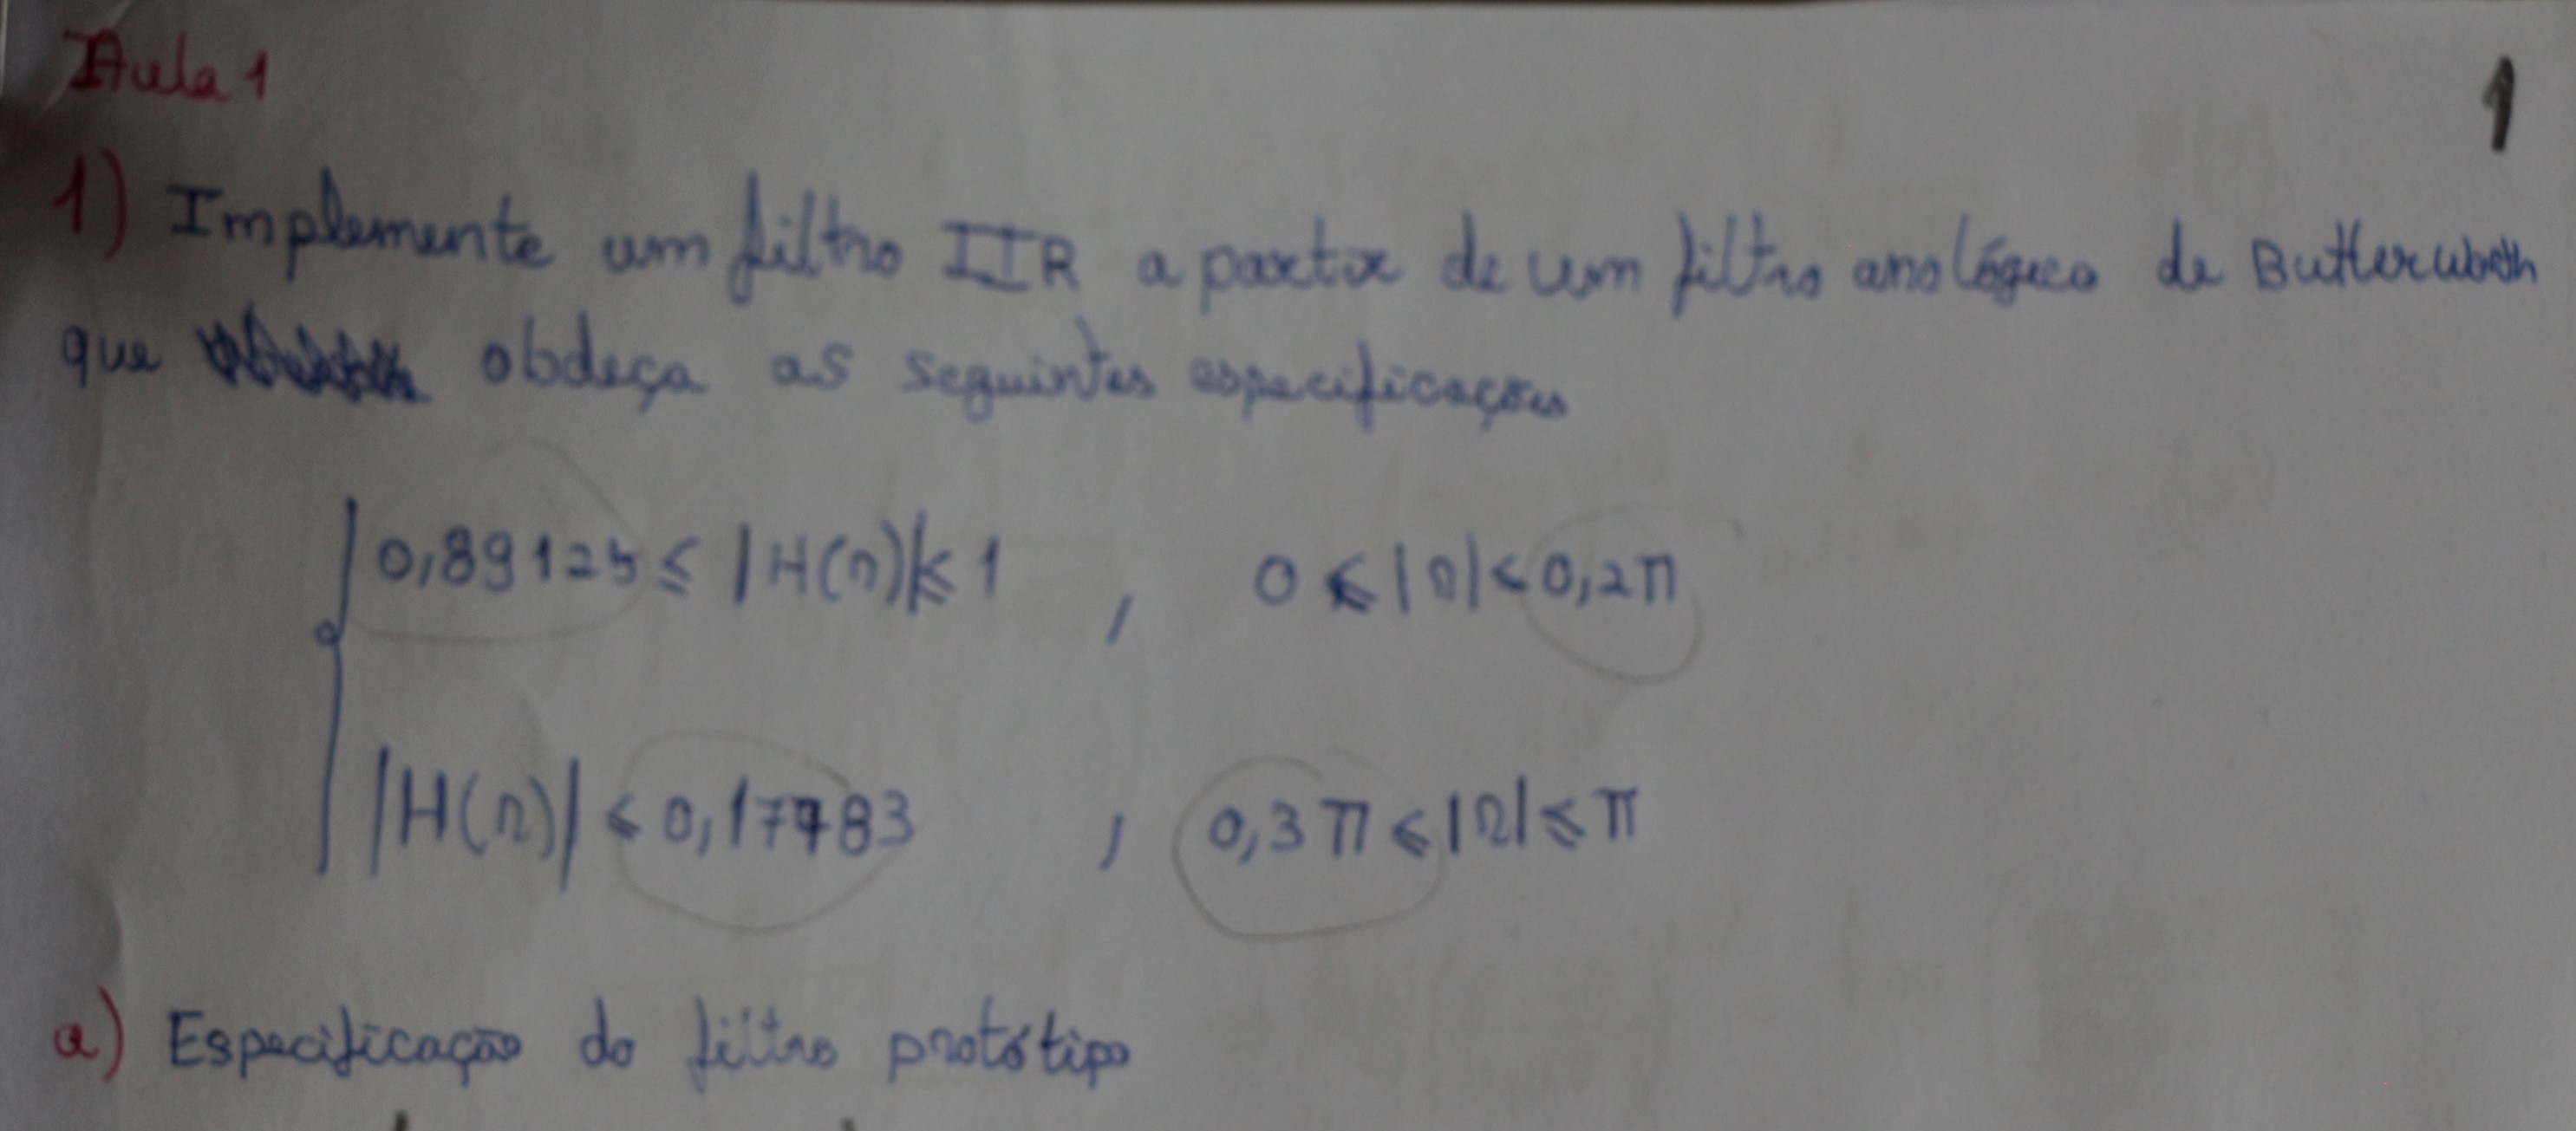 Aula 1
1
1) Implemente um filtro IIR a partir de um filtro analógico de Butterwoth
que obdeça as seguintes especificações
0,89125 ≤ |H(Ω)| ≤ 1 , 0 ≤ |Ω| < 0,2π
|H(Ω)| ≤ 0,17783 , 0,3π ≤ |Ω| ≤ π
a) Especificação do filtro protótipo